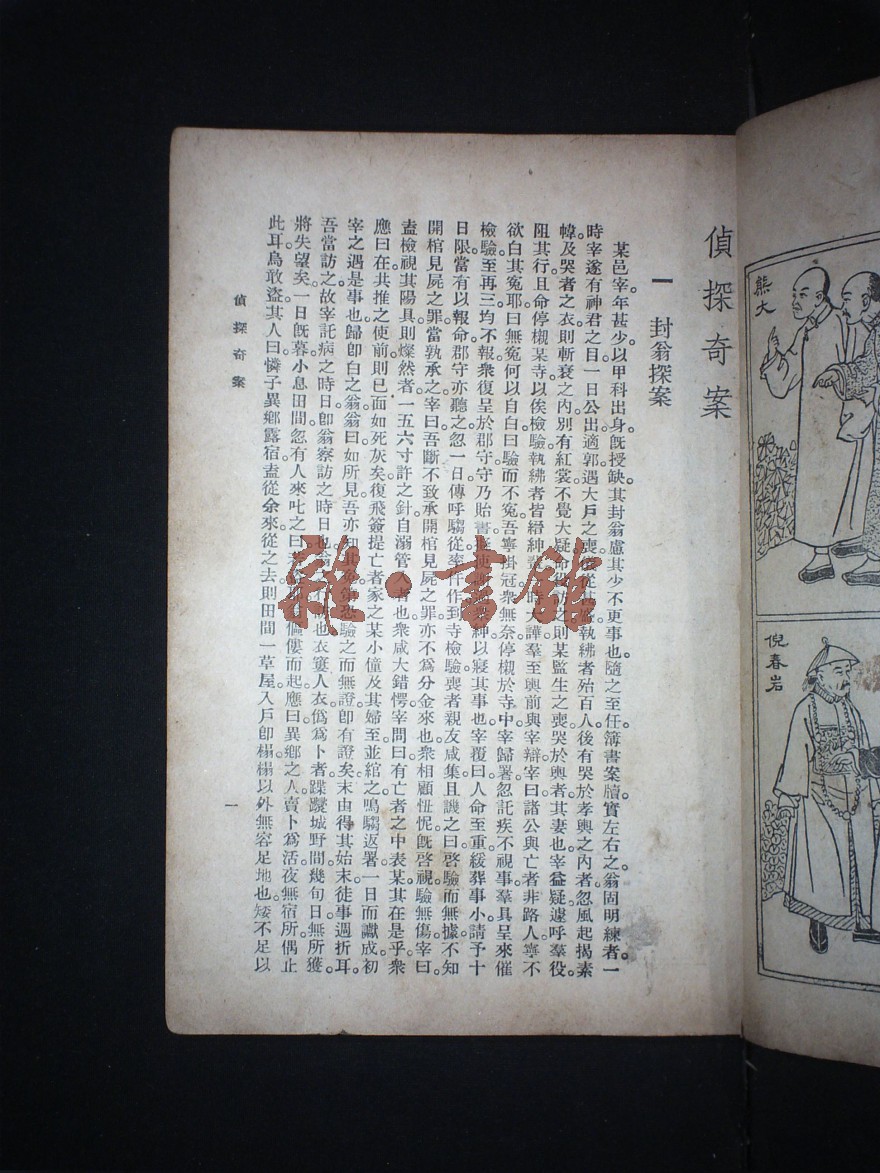 偵探奇案
一 封翁探案
某邑宰。年甚少。以甲科出身。旣授缺。其封翁慮其少不更事也。隨之至任。簿書案牘。實左右之。翁固明練者。一
時宰遂有神君之目。一日公出。適郭遇大戶之喪。執紼者殆百人。後有哭於孝輿之內者。忽風起揭素
幃。及哭者之衣。則斬衰之內。別有紅裳。不覺大疑。命則某監生之喪。哭於輿者。其妻也。宰益疑。遽呼羣役。
阻其行。且命停櫬某寺。以俟檢驗。執紼者皆縉紳大譁。羣至輿前與宰辯。宰曰。諸公與亡者非路人。寧不
欲白其寃耶。曰無寃何以自白。曰驗而不寃。吾寧掛冠。衆無奈。停櫬於寺中。宰歸署。忽託疾不視事。羣具呈來催
檢驗。至再三。均不報。衆復呈於郡守。守乃貽書紳以寢其事也。宰覆曰。人命至重。緩葬事小。請予十
日限。當有以報命。郡守亦聽之。忽一日傳呼騶從率仵作到寺檢驗。喪者親友咸集。且譏之曰。啓驗而無據。不知
開棺見屍之罪。當孰承之。宰曰。吾斷不致承開棺見屍之罪。亦不爲分金來也。衆相顧忸怩。旣啓視。驗無傷。宰曰。
盍檢視其陽具。則燦然者一五六寸許之針。自溺管入者也。衆咸大錯愕。宰問曰。有亡者之中表某。其在是乎。衆
應曰在。共推之使前。則已面如死灰矣。復飛簽提亡者家之某小僮及其婦至。並綰之鳴騶返署。一日而讞成。初
宰之遇是事也。歸卽白之翁。翁曰。如所見。吾亦恐驗之而無證。卽有證矣。末由得其始末。徒事週折耳。
吾當訪之。故宰託病之時日。卽翁察訪之時日也。也。衣窶人衣。僞爲卜者。蹀躞城野間。幾旬日。無所獲。
將失望矣。一日旣暮。小息田間。忽有人來叱之曰。傴僂而起。應曰。異鄉之人。賣卜爲活。夜無宿所。偶止
此耳。烏敢盜。其人曰。憐子異鄉露宿。盍從余來。從之去。則田間一草屋。入戶卽榻。榻以外無容足地也。矮不足以
偵探奇案
一
熊大
倪春岩
雜·書館